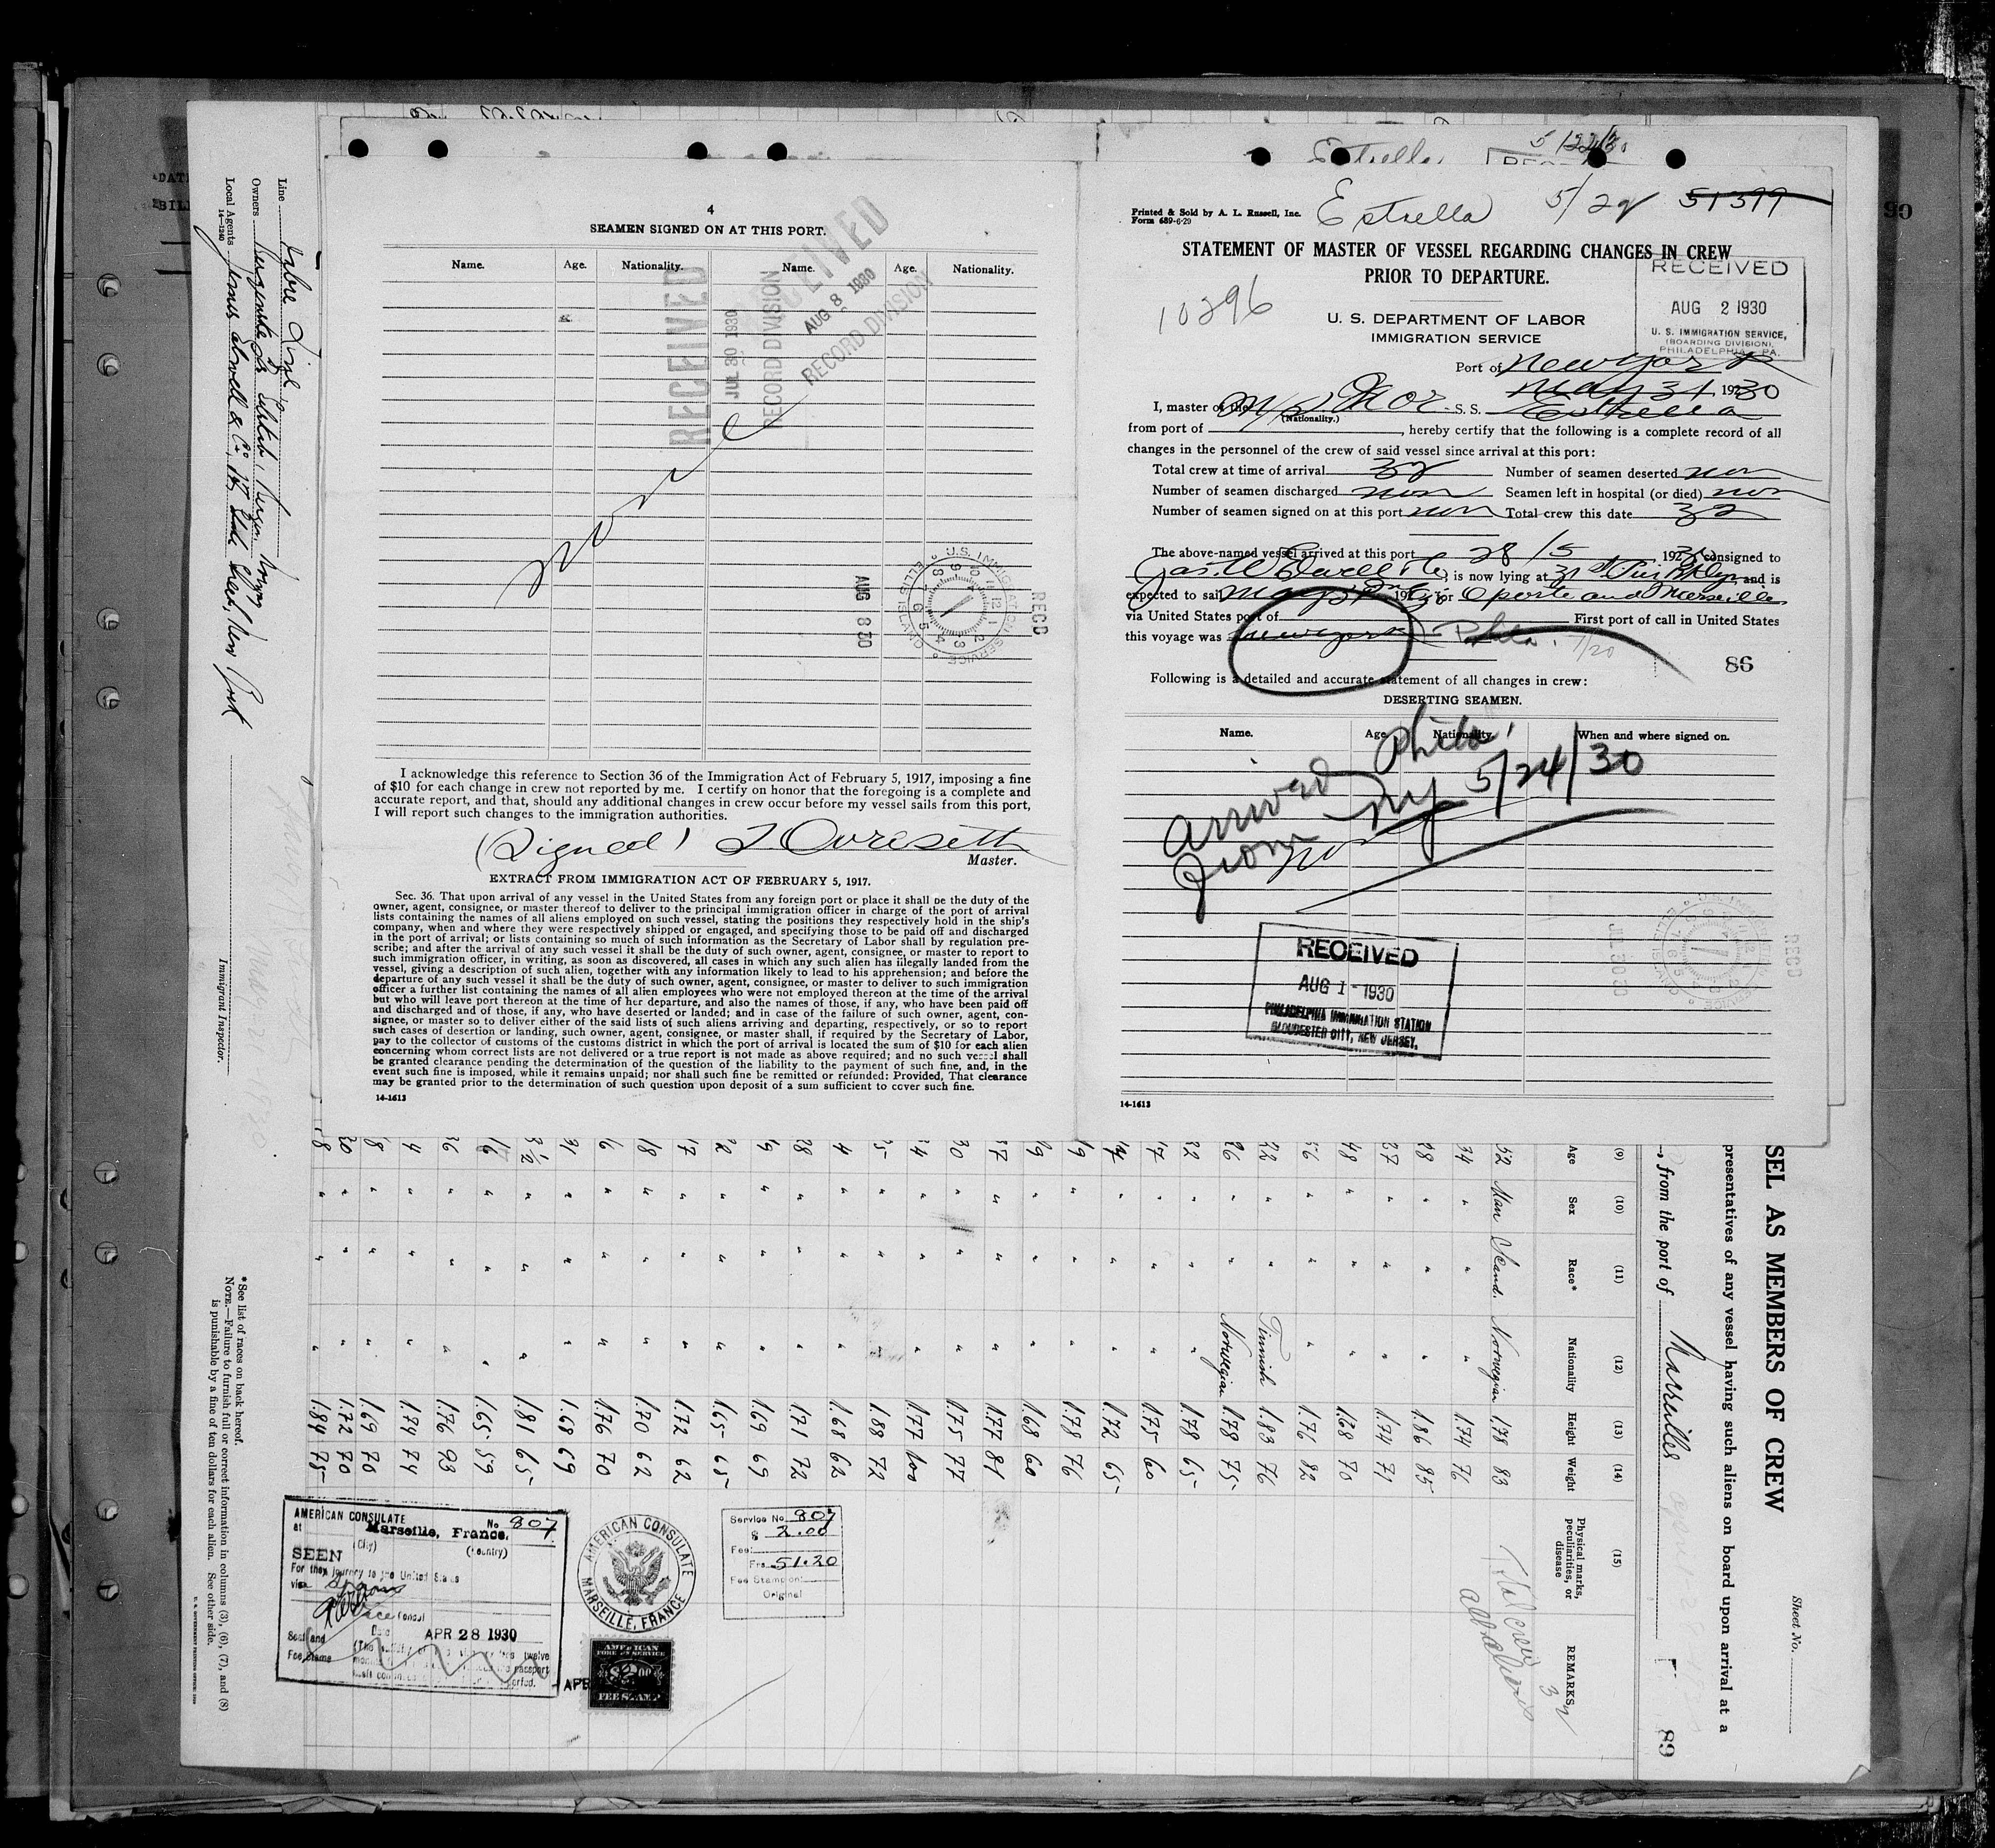 4
SEAMEN SIGNED ON AT THIS PORT.
Name. Age. Nationality. Name. Age. Nationality.
RECEIVED
JUL 30 1930
RECORD DIVISION
RECEIVED
AUG 8 1930
RECORD DIVISION
None
U.S. IMMIGRATION SERVICE
ELLIS ISLAND
AUG 8 30
REC'D
I acknowledge this reference to Section 36 of the Immigration Act of February 5, 1917, imposing a fine
of $10 for each change in crew not reported by me. I certify on honor that the foregoing is a complete and
accurate report, and that, should any additional changes in crew occur before my vessel sails from this port,
I will report such changes to the immigration authorities.
(Signed)
Master.
EXTRACT FROM IMMIGRATION ACT OF FEBRUARY 5, 1917.
Sec. 36. That upon arrival of any vessel in the United States from any foreign port or place it shall be the duty of the
owner, agent, consignee, or master thereof to deliver to the principal immigration officer in charge of the port of arrival
lists containing the names of all aliens employed on such vessel, stating the positions they respectively hold in the ship's
company, when and where they were respectively shipped or engaged, and specifying those to be paid off and discharged
in the port of arrival; or lists containing so much of such information as the Secretary of Labor shall by regulation pre-
scribe; and after the arrival of any such vessel it shall be the duty of such owner, agent, consignee, or master to report to
such immigration officer, in writing, as soon as discovered, all cases in which any such alien has illegally landed from the
vessel, giving a description of such alien, together with any information likely to lead to his apprehension; and before the
departure of any such vessel it shall be the duty of such owner, agent, consignee, or master to deliver to such immigration
officer a further list containing the names of all alien employees who were not employed thereon at the time of the arrival
but who will leave port thereon at the time of her departure, and also the names of those, if any, who have been paid off
and discharged and of those, if any, who have deserted or landed; and in case of the failure of such owner, agent, con-
signee, or master so to deliver either of the said lists of such aliens arriving and departing, respectively, or so to report
such cases of desertion or landing, such owner, agent, consignee, or master shall, if required by the Secretary of Labor,
pay to the collector of customs of the customs district in which the port of arrival is located the sum of $10 for each alien
concerning whom correct lists are not delivered or a true report is not made as above required; and no such vessel shall
be granted clearance pending the determination of the question of the liability to the payment of such fine, and, in the
event such fine is imposed, while it remains unpaid; nor shall such fine be remitted or refunded: Provided, That clearance
may be granted prior to the determination of such question upon deposit of a sum sufficient to cover such fine.
14-1613
Estrella 5/22/30
Printed & Sold by A. L. Russell, Inc.
Form 689-6-29
Estrella 5/29 51399
STATEMENT OF MASTER OF VESSEL REGARDING CHANGES IN CREW
PRIOR TO DEPARTURE.
10296
U. S. DEPARTMENT OF LABOR
IMMIGRATION SERVICE
RECEIVED
AUG 2 1930
U. S. IMMIGRATION SERVICE,
(BOARDING DIVISION),
PHILADELPHIA, PA.
Port of New York
May 31 1930
I, master of the M/S Nor - S. S. Estrella
(Nationality.)
from port of , hereby certify that the following is a complete record of all
changes in the personnel of the crew of said vessel since arrival at this port:
Total crew at time of arrival 32 Number of seamen deserted non
Number of seamen discharged non Seamen left in hospital (or died) non
Number of seamen signed on at this port non Total crew this date 32
The above-named vessel arrived at this port 28/5 1930 consigned to
Jas. W. Elwell & Co, is now lying at 31 st Pier Bklyn and is
expected to sail May 31 192 for Oporto and Marseille
via United States port of First port of call in United States
this voyage was New York Phila. 86
Following is a detailed and accurate statement of all changes in crew:
DESERTING SEAMEN.
Name. Age. Nationality. When and where signed on.
arrived Phila.
from NY 5/24/30
non
RECEIVED
AUG 1 - 1930
PHILADELPHIA IMMIGRATION STATION
GLOUCESTER CITY, NEW JERSEY.
JUL 30 30
REC'D
14-1613
90
Line Fabre Line
Owners Bergenske D/S Selskab, Bergen Norway
Local Agents James Elwell & Co, 17 State Street, New York
14-1240
Immigrant Inspector.
*See list of races on back hereof.
NOTE.—Failure to furnish full or correct information in columns (3), (6), (7), and (8)
is punishable by a fine of ten dollars for each alien. See other side.
Sheet No.
SEL AS MEMBERS OF CREW
presentatives of any vessel having such aliens on board upon arrival at a
, from the port of Marseilles
89
(9) (10) (11) (12) (13) (14) (15)
Age Sex Race* Nationality Height Weight Physical marks, peculiarities, or disease REMARKS
52 Man Scand. Norwegian 1,78 83
34 " " " 1.74 76
28 " " " 1.86 85
37 " " " 1.74 71
48 " " " 1.68 70
56 " " " 1.76 82
22 " " Finnish 1.83 76
26 " " Norwegian 1.78 75
22 " " " 1.78 65
17 " " " 1.75 60
" " " 1.72 65
19 " " " 1.78 76
19 " " " 1.68 60
37 " " " 1.77 81
30 " " " 1.75 77
24 " " " 1.77 100
25 " " " 1.88 72
4 " " " 1.68 62
28 " " " 1.71 72
19 " " " 1.69 69
22 " " " 1.65 65
17 " " " 1.72 62
18 " " " 1.70 62
6 " " " 1.76 70
31 " " " 1.68 69
" " " 1.81 65
16 " " " 1.65 59
36 " " " 1.76 93
4 " " " 1.74 74
8 " " " 1.69 70
30 " " " 1.72 70
18 " " " 1.84 75
Total crew 32
AMERICAN CONSULATE No 807
at Marseille, France.
(City) (Country)
SEEN
For the journey to the United States
Vice Consul
Date APR 28 1930
Seal and
Fee Stamp
AMERICAN CONSULATE
MARSEILLE, FRANCE
Service No 807
$ 2.00
Fee:
Frs 51.20
Fee Stamp on:
Original
AMERICAN
FOREIGN SERVICE
$2.00
FEE STAMP
APR